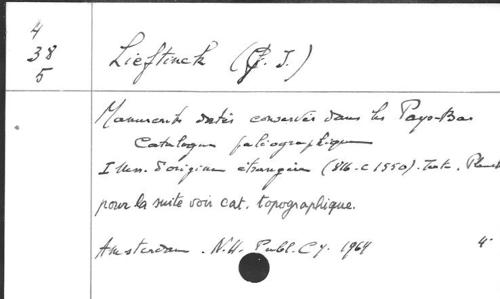 4
38
5
Lieftinck (G. I.)
Manuscrits datés conservés dans les Pays-Bas
Catalogue paléographique
I Mss. d'origine étrangère (816-c 1550). Texte. Planches
pour la suite voir cat. topographique.
Amsterdam. N.H. Publ. Cy. 1964 4°